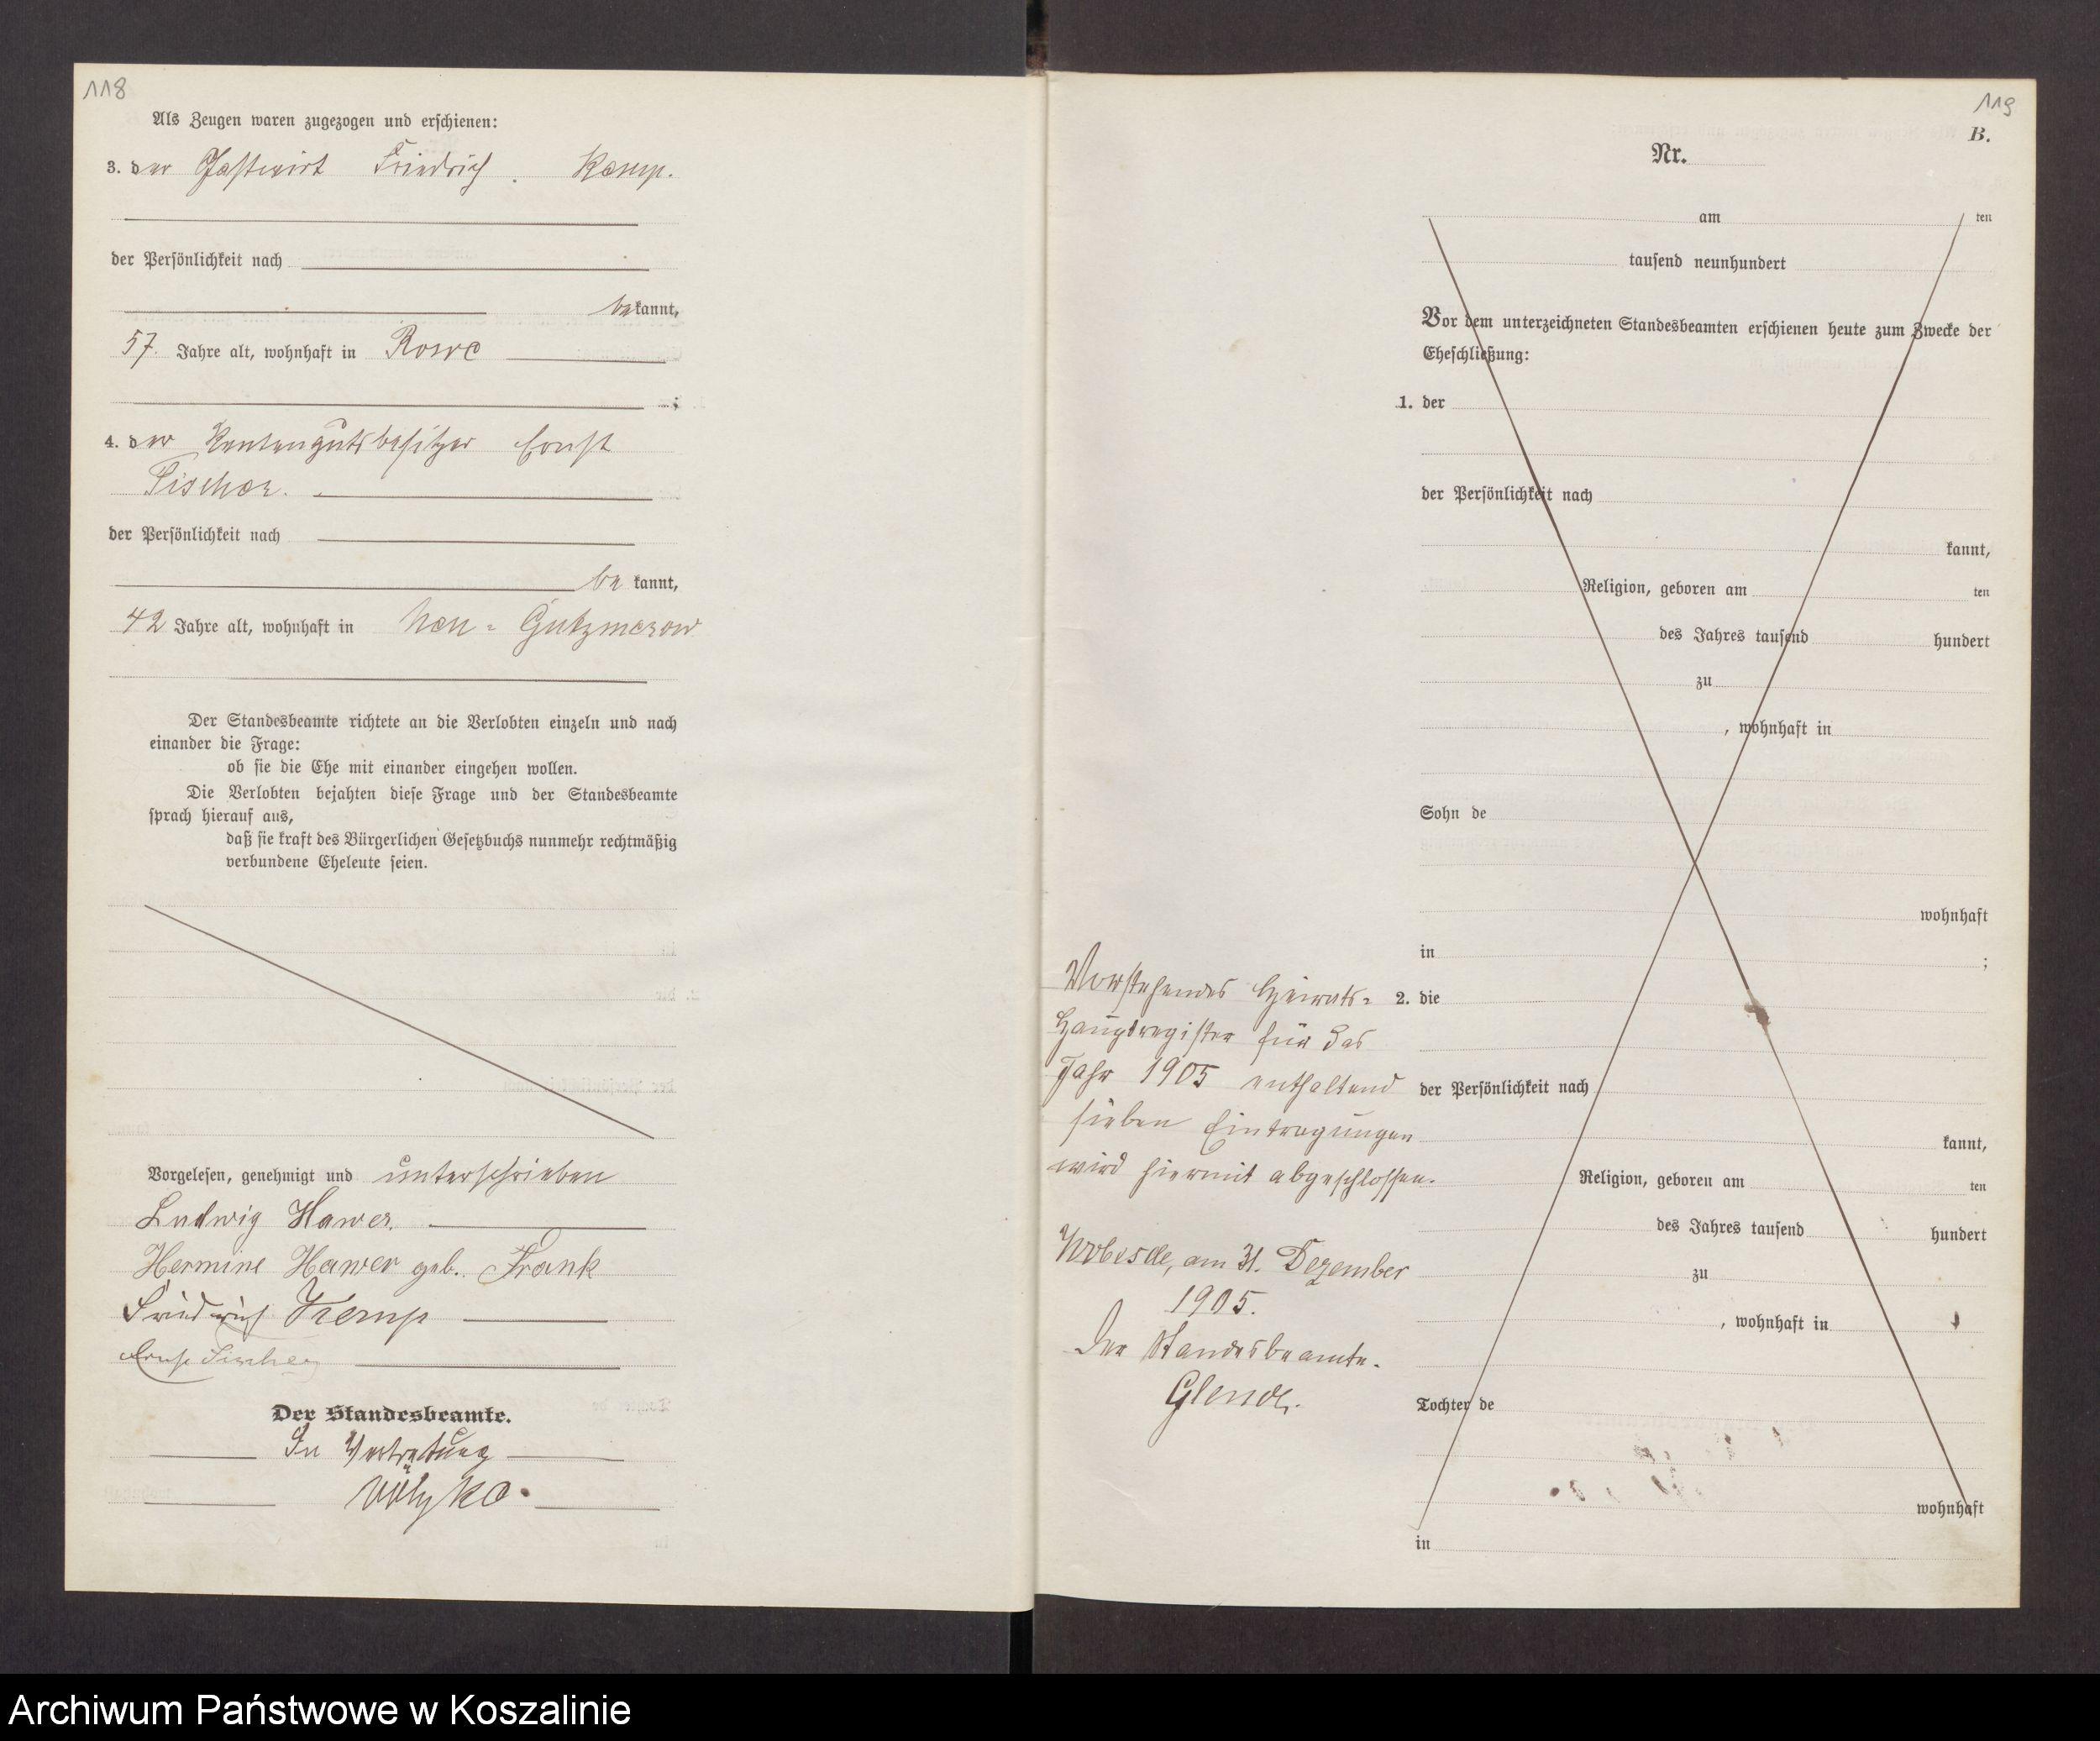 118
Als Zeugen waren zugezogen und erschienen:
3. der Gastwirt Friedrich Kemp.
der Persönlichkeit nach
bekannt,
57. Jahre alt, wohnhaft in Rowe
;
4. der Rentengutsbesitzer Ernst
Fischer.
der Persönlichkeit nach
be kannt,
42 Jahre alt, wohnhaft in Neu-Gutzmerow
Der Standesbeamte richtete an die Verlobten einzeln und nach
einander die Frage:
ob sie die Ehe mit einander eingehen wollen.
Die Verlobten bejahten diese Frage und der Standesbeamte
sprach hierauf aus,
daß sie kraft des Bürgerlichen Gesetzbuchs nunmehr rechtmäßig
verbundene Eheleute seien.
Vorgelesen, genehmigt und unterschrieben
Ludwig Hawer.
Hermine Hawer geb. Frank
Friedrich Kemp
Ernst Fischer
Der Standesbeamte.
In Vertretung
119
B.
Nr.
am ten
tausend neunhundert
Vor dem unterzeichneten Standesbeamten erschienen heute zum Zwecke der
Eheschließung:
1. der
der Persönlichkeit nach
kannt,
Religion, geboren am ten
des Jahres tausend hundert
zu
, wohnhaft in
Sohn de
wohnhaft
in ;
2. die
der Persönlichkeit nach
kannt,
Religion, geboren am ten
des Jahres tausend hundert
zu
, wohnhaft in
Tochter de
wohnhaft
in
Vorstehendes Heirats-
Hauptregister für das
Jahr 1905 enthaltend
sieben Eintragungen
wird hiermit abgeschlossen.
Wobesde, am 31. Dezember
1905.
Der Standesbeamte.
Archiwum Państwowe w Koszalinie